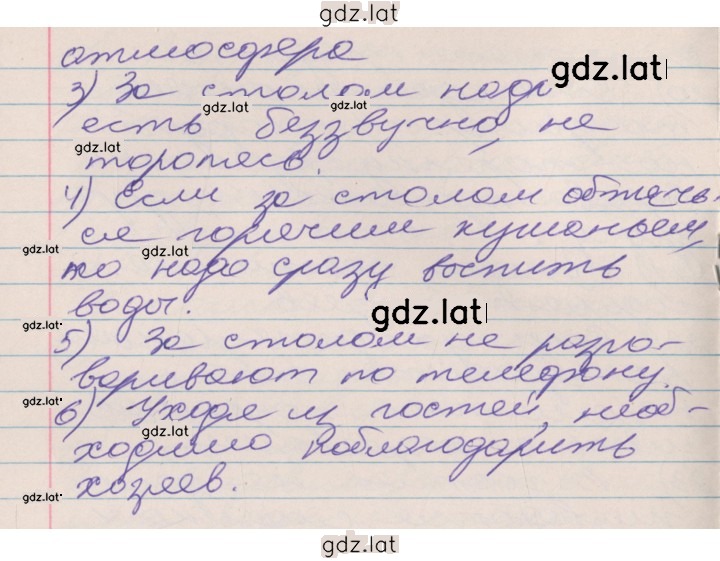 gdz.lat
атмосфера
gdz.lat
3) За столом надо
gdz.lat gdz.lat
есть беззвучно, не
gdz.lat
торопясь.
4) Если за столом обжечь-
ся горячим кушаньем,
gdz.lat gdz.lat
то надо сразу выпить
воды.
gdz.lat
gdz.lat
5) За столом не разго-
варивают по телефону.
gdz.lat
6) Уходя из гостей, необ-
gdz.lat
ходимо поблагодарить
хозяев.
gdz.lat
gdz.lat